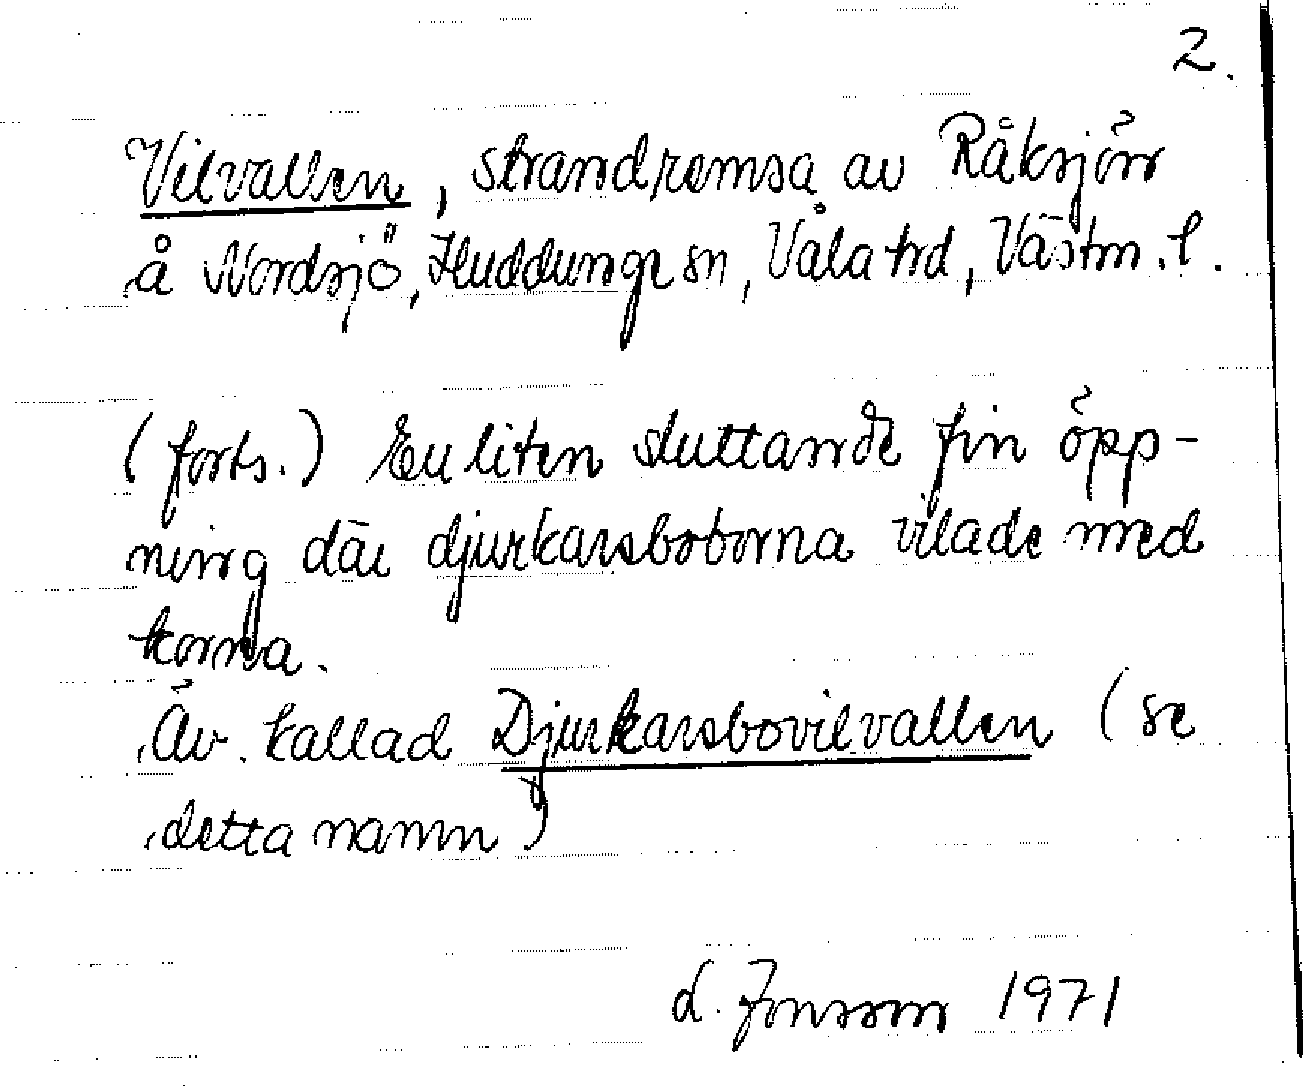 2.
Vilvallen, strandremsa av Råksjön
å Nordsjö, Huddunge sn, Våla hd, Västm. l.
(forts.) En liten sluttande fin öpp-
ning där djurkarsboborna vilade med
korna.
Äv. kallad Djurkarsbovilvallen (se
detta namn)
L. Jonsson 1971